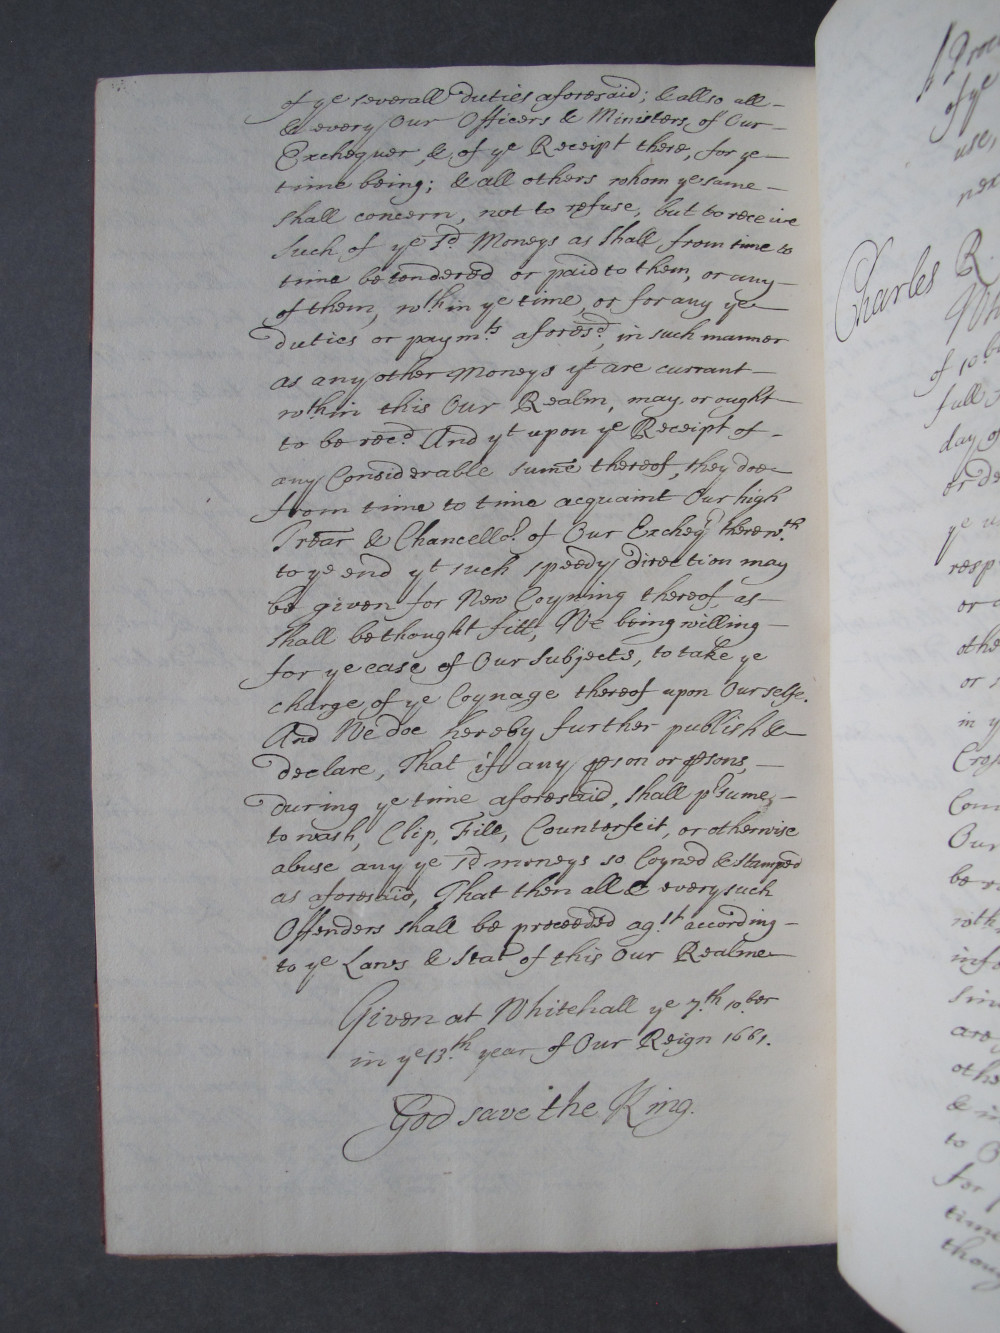 of ye severall Duties aforesaid; & allso all
& every Our Officers & Ministers, of Our
Exchequer, & of ye Receipt there, for ye
time being; & all others whom ye same
shall concern, not to refuse, but to receive
such of ye sd. Moneys as shall, from time to
time be tendered or paid to them, or any
of them, wth.in ye time, or for any ye
duties or paymts. aforesd., in such manner
as any other Moneys yt are currant
wth.in this Our Realm, may, or ought
to be recd. And yt upon ye Receipt of
any Considerable sume thereof, they doe
from time to time acquaint Our high
Trear & Chancellor. of Our Excheqr. therewth.
to ye end yt such speedy direction may
be given for New Coyning thereof, as
shall be thought fitt, We being willing
for ye ease of Our Subjects, to take ye
charge, of ye Coynage thereof upon Our selfe.
And We doe hereby further publish &
declare, That if any pson or psons,
during ye time aforesaid, shall psume,
to wash, Clip, File, Counterfeit, or otherwise
abuse any ye sd moneys so Coyned & stamped
as aforesaid, That then all & every such
Offenders shall be proceeded agst. according
to ye Laws & Stat of this Our Realme
Given at Whitehall ye 7th. 10.ber
in ye 13th. year of Our Reign 1661.
God save the King.
of ye
use,
Charles R
of 10.b
full
day of
or de
ye
resp
or
othe
or
in y
Com
Our
be
infо
are
othe
& in
to
for
time
thoug